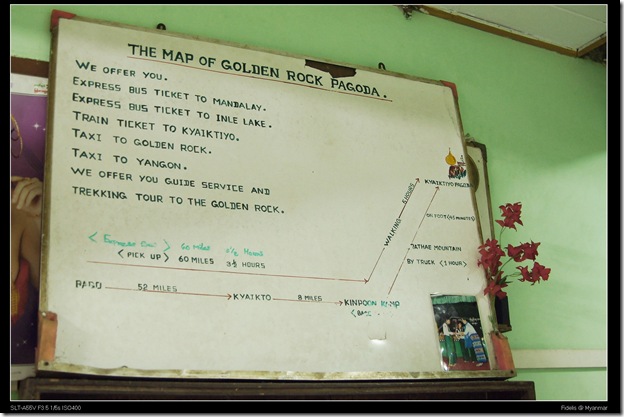 THE MAP OF GOLDEN ROCK PAGODA.
WE OFFER YOU.
EXPRESS BUS TICKET TO MANDALAY.
EXPRESS BUS TICKET TO INLE LAKE.
TRAIN TICKET TO KYAIKTIYO.
TAXI TO GOLDEN ROCK.
TAXI TO YANGON.
WE OFFER YOU GUIDE SERVICE AND
TREKKING TOUR TO THE GOLDEN ROCK.
KYAIKTIYO PAGODA
WALKING 6 HOURS
ON FOOT (45 MINUTES)
YATHAE MOUNTAIN
BY TRUCK <1 HOUR>
60 Miles
<PICK UP> 60 MILES 3½ HOURS
BAGO 52 MILES KYAIKTO 8 MILES KINPOON KAMP
SLT-A65V F3.5 1/5s ISO400
Fidelis @ Myanmar